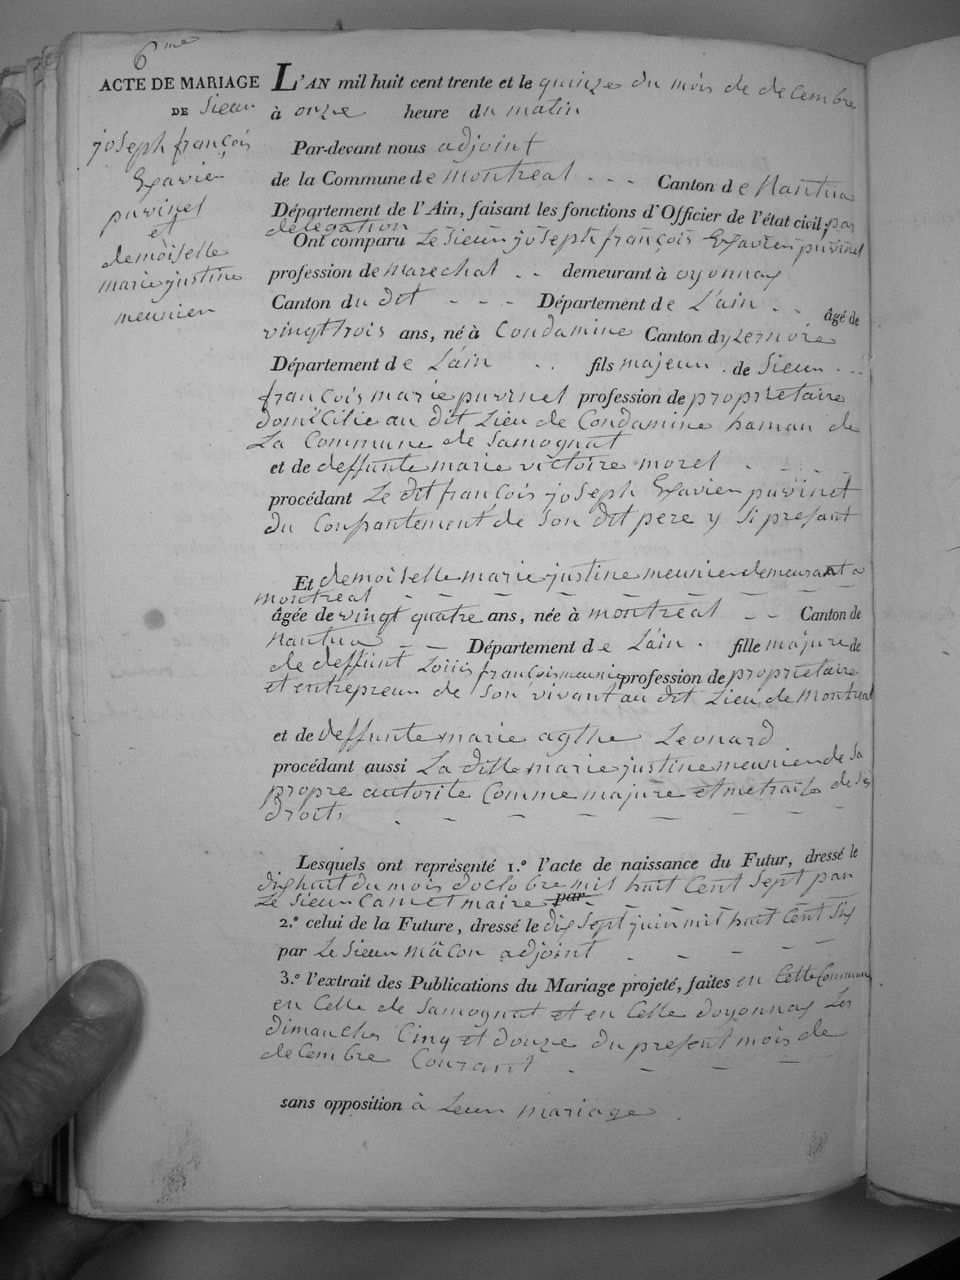 6me
ACTE DE MARIAGE
DE Sieur
joseph françois
Exavier
puvinel
et
demoiselle
marie justine
meunier
L'AN mil huit cent trente et le quinze du mois de decembre
à onze heure du matin
Par-devant nous adjoint
de la Commune de montreal - - - Canton de Nantua
Département de l'Ain, faisant les fonctions d'Officier de l'état civil, par
délégation
Ont comparu Le Sieur joseph françois Exavier puvinel
profession de marechal - - demeurant à oyonnax
Canton du dit - - - Département de L'ain - - âgé de
vingt trois ans, né à Condamine Canton dyzernore
Département de L'ain - - fils majeur . de Sieur - -
françois marie puvinel profession de propriétaire
domicilie au dit Lieu de Condamine hamau de
La Commune de Samognat
et de deffunte marie victoire morel - - - -
procédant Le dit françois joseph Exavier puvinel
du Confantement de Son dit pere y Si prefant
Et demoiselle marie justine meunier demeurant a
montreal - - - - - - - -
âgée de vingt quatre ans, née à montreal - - Canton de
Nantua - - Département de L'ain . fille majure de
de deffunt Loüis françois meunier profession de propriétaire
et entrepreur de Son vivant au dit Lieu de montreal
et de deffunte marie agthe Leonard
procédant aussi La ditte marie justine meunier de Sa
propre autorite Comme majure et metraite de Ses
droits - - - - - -
Lesquels ont représenté 1.° l'acte de naissance du Futur, dressé le
dix huit du mois doctobre mil huit Cent Sept par
Le Sieur Camet maire par - - - -
2.° celui de la Future, dressé le dix Sept juin mil huit Cent Six
par Le Sieur mâcon adjoint - - - -
3.° l'extrait des Publications du Mariage projeté, faites en Cette Commune
en Celle de Samognat et en Celle doyonnax Les
dimanches Cinq et douze du prefent mois de
decembre Courant - - - - -
sans opposition à Leur mariage .